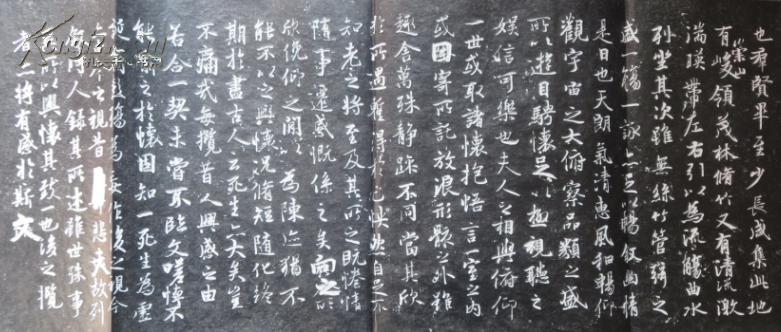 也羣賢畢至少長咸集此地
有崇山峻領茂林脩竹又有清流激
湍暎帶左右引以為流觴曲水
列坐其次雖無絲竹管弦之
盛一觴一詠亦足以暢叙幽情
是日也天朗氣清惠風和暢仰
觀宇宙之大俯察品類之盛
所以遊目騁懷足以極視聽之
娛信可樂也夫人之相與俯仰
一世或取諸懷抱悟言一室之内
或因寄所託放浪形骸之外雖
趣舍萬殊静躁不同當其欣
於所遇暫得於己怏然自足不
知老之將至及其所之既惓情
隨事遷感慨係之矣向之所
欣俛仰之間以為陳迹猶不
能不以之興懷況脩短隨化終
期於盡古人云死生亦大矣豈
不痛哉每攬昔人興感之由
若合一契未嘗不臨文嗟悼不
能喻之於懷固知一死生為虛
誕齊彭殤為妄作後之視今
亦由今之視昔悲夫故列
叙時人録其所述雖世殊事
異所以興懷其致一也後之攬
者亦將有感於斯文